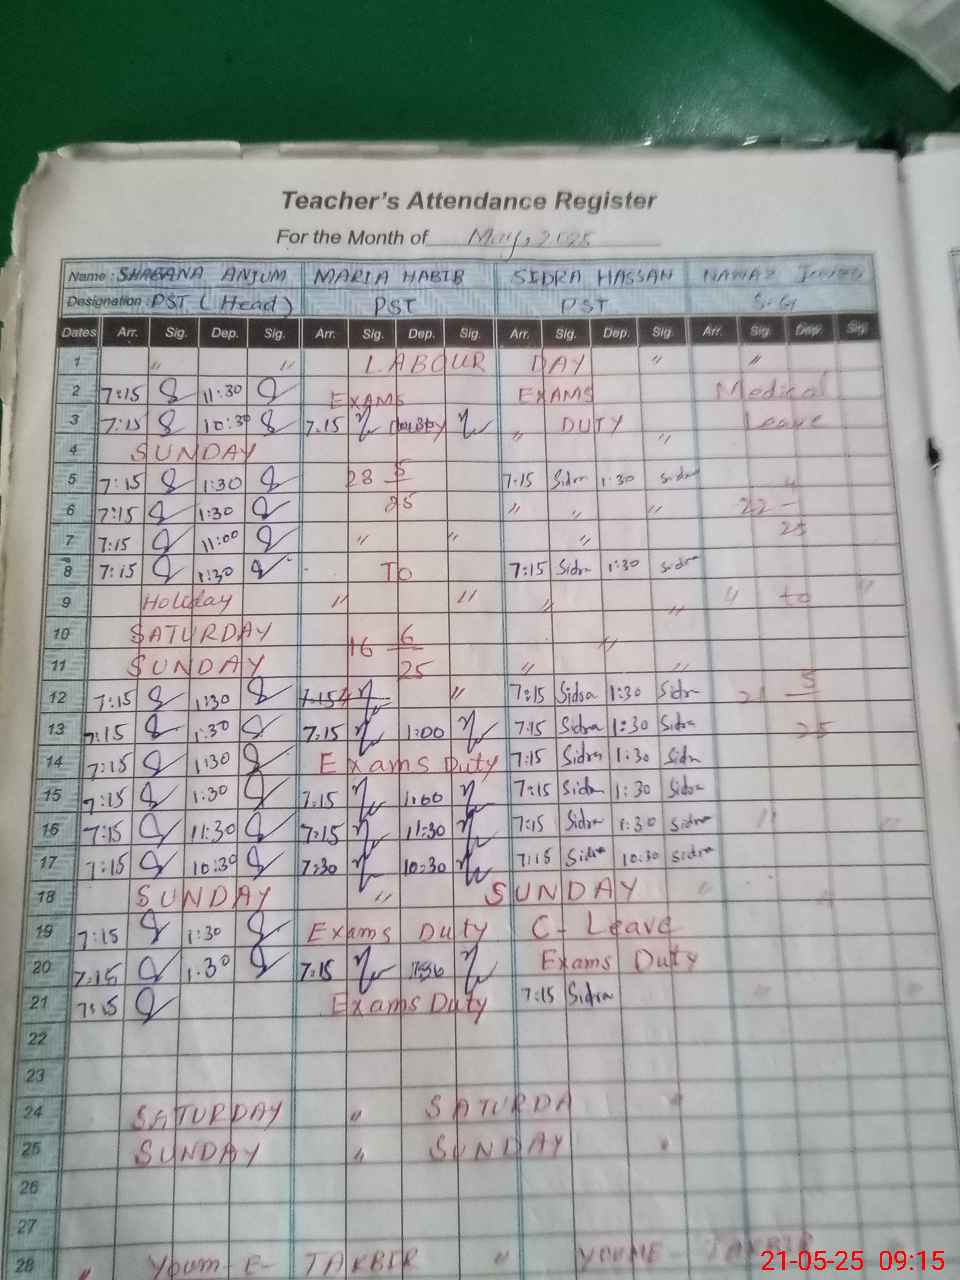 Teacher's Attendance Register
For the Month of May, 2025
Name : SHABANA ANJUM MARIA HABIB SIDRA HASSAN NAWAZ
Designation : PST ( Head ) PST PST
Dates Arr. Sig. Dep. Sig. Arr. Sig. Dep. Sig. Arr. Sig. Dep. Sig. Arr. Sig. Dep. Sig.
1 " " LABOUR DAY " "
2 7:15 11:30 EXAMS EXAMS Medical
3 7:15 10:30 7.15 " DUTY " Leave
4 SUNDAY
5 7:15 1:30 28 5 7:15 Sidra 1:30 Sidra
6 7:15 1:30 25 " " " 22 -
7 7:15 11:00 " " " 25
8 7:15 1:30 TO 7:15 Sidra 1:30 Sidra
9 Holiday " " " " " to "
10 SATURDAY 16 6 "
11 SUNDAY 25 " "
12 7:15 1:30 7.15 " 7:15 Sidra 1:30 Sidra 21 5
13 7:15 1:30 7.15 1:00 7:15 Sidra 1:30 Sidra 25
14 7:15 1:30 Exams Duty 7:15 Sidra 1:30 Sidra
15 7:15 1:30 7.15 1:00 7:15 Sidra 1:30 Sidra
16 7:15 11:30 7:15 11:30 7:15 Sidra 1:30 Sidra " "
17 7:15 10:30 7:30 10:30 7:15 Sidra 10:30 Sidra
18 SUNDAY " SUNDAY "
19 7:15 1:30 Exams Duty C- Leave
20 7:15 1:30 7.15 Exams Duty
21 7:15 Exams Duty 7:15 Sidra " "
22
23
24 SATURDAY " SATURDA "
25 SUNDAY " SUNDAY "
26
27
28 " Youm - E - TAKBIR " YOUME - TAKBIR
21-05-25 09:15